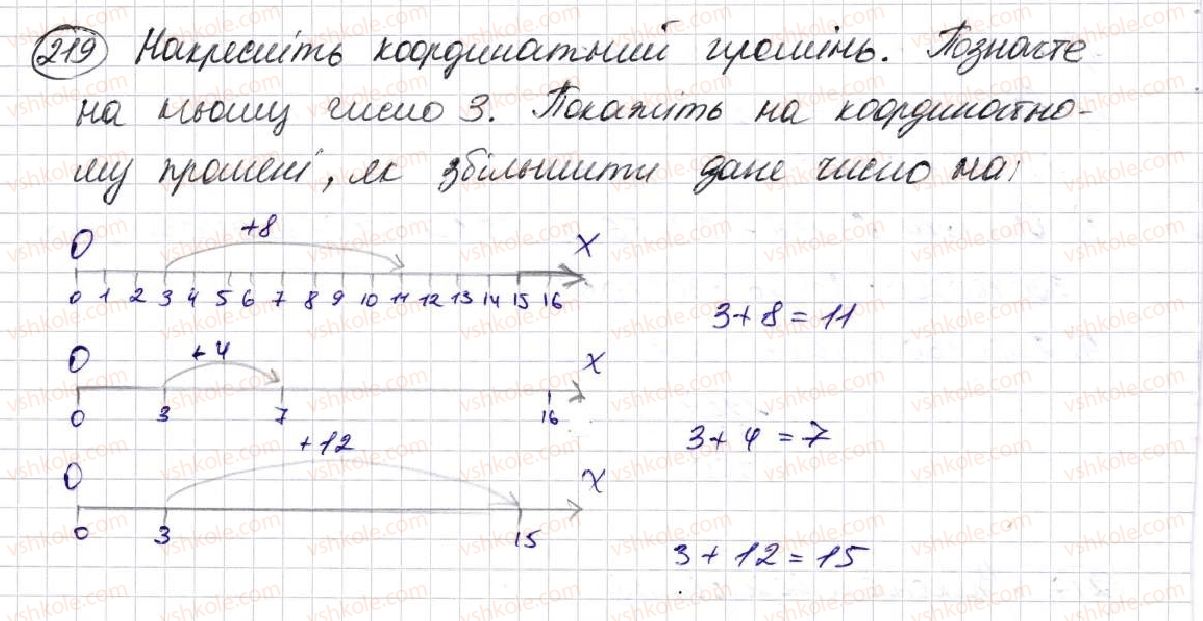 219 Накресліть координатний промінь. Позначте
на ньому число 3. Покажіть на координатно-
му промені, як збільшити дане число на:
+8
O X
0 1 2 3 4 5 6 7 8 9 10 11 12 13 14 15 16
3 + 8 = 11
+4
O X
0 3 7 16
3 + 4 = 7
+12
O X
0 3 15
3 + 12 = 15
vshkole.com